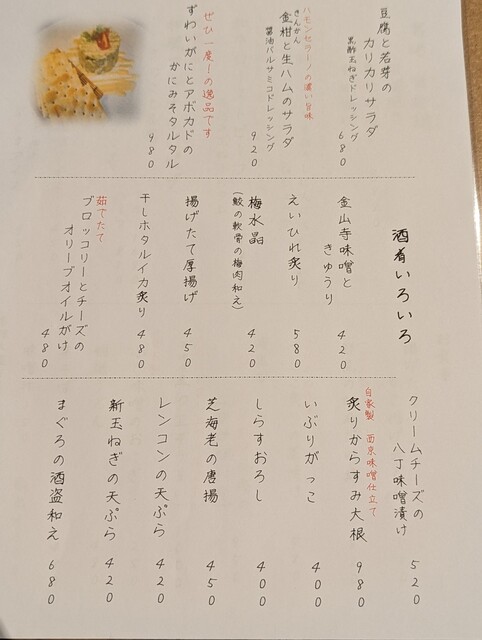 豆腐と若芽の
カリカリサラダ
黒酢玉ねぎドレッシング
680
ハモンセラーノの濃い旨味
きんかん
金柑と生ハムのサラダ
醤油バルサミコドレッシング
920
ぜひ一度！の逸品です
ずわいがにとアボカドの
かにみそタルタル
980
酒肴いろいろ
金山寺味噌と
きゅうり
420
えいひれ炙り
580
梅水晶
(鮫の軟骨の梅肉和え)
420
揚げたて厚揚げ
450
干しホタルイカ炙り
480
茹でたて
ブロッコリーとチーズの
オリーブオイルがけ
480
クリームチーズの
八丁味噌漬け
520
自家製 西京味噌仕立て
炙りからすみ大根
980
いぶりがっこ
400
しらすおろし
400
芝海老の唐揚
450
レンコンの天ぷら
420
新玉ねぎの天ぷら
420
まぐろの酒盗和え
680